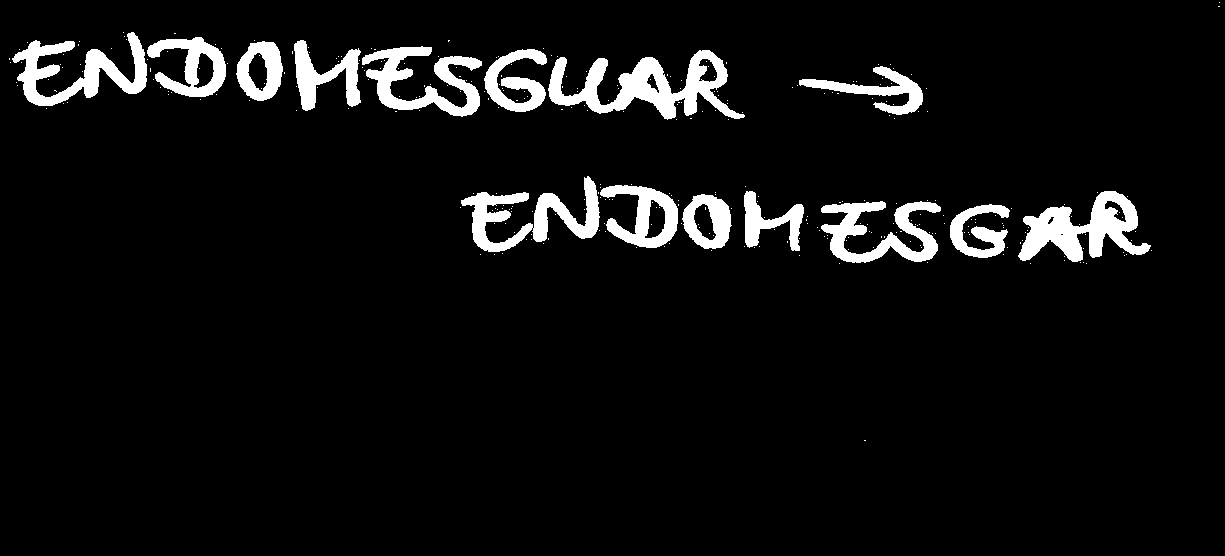 ENDOMESGUAR →
ENDOMESGAR